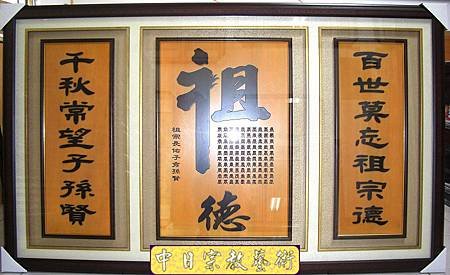 百世莫忘祖宗德
祖
德
祖宗長佑子孫賢
千秋常望子孫賢
中日宗教藝術